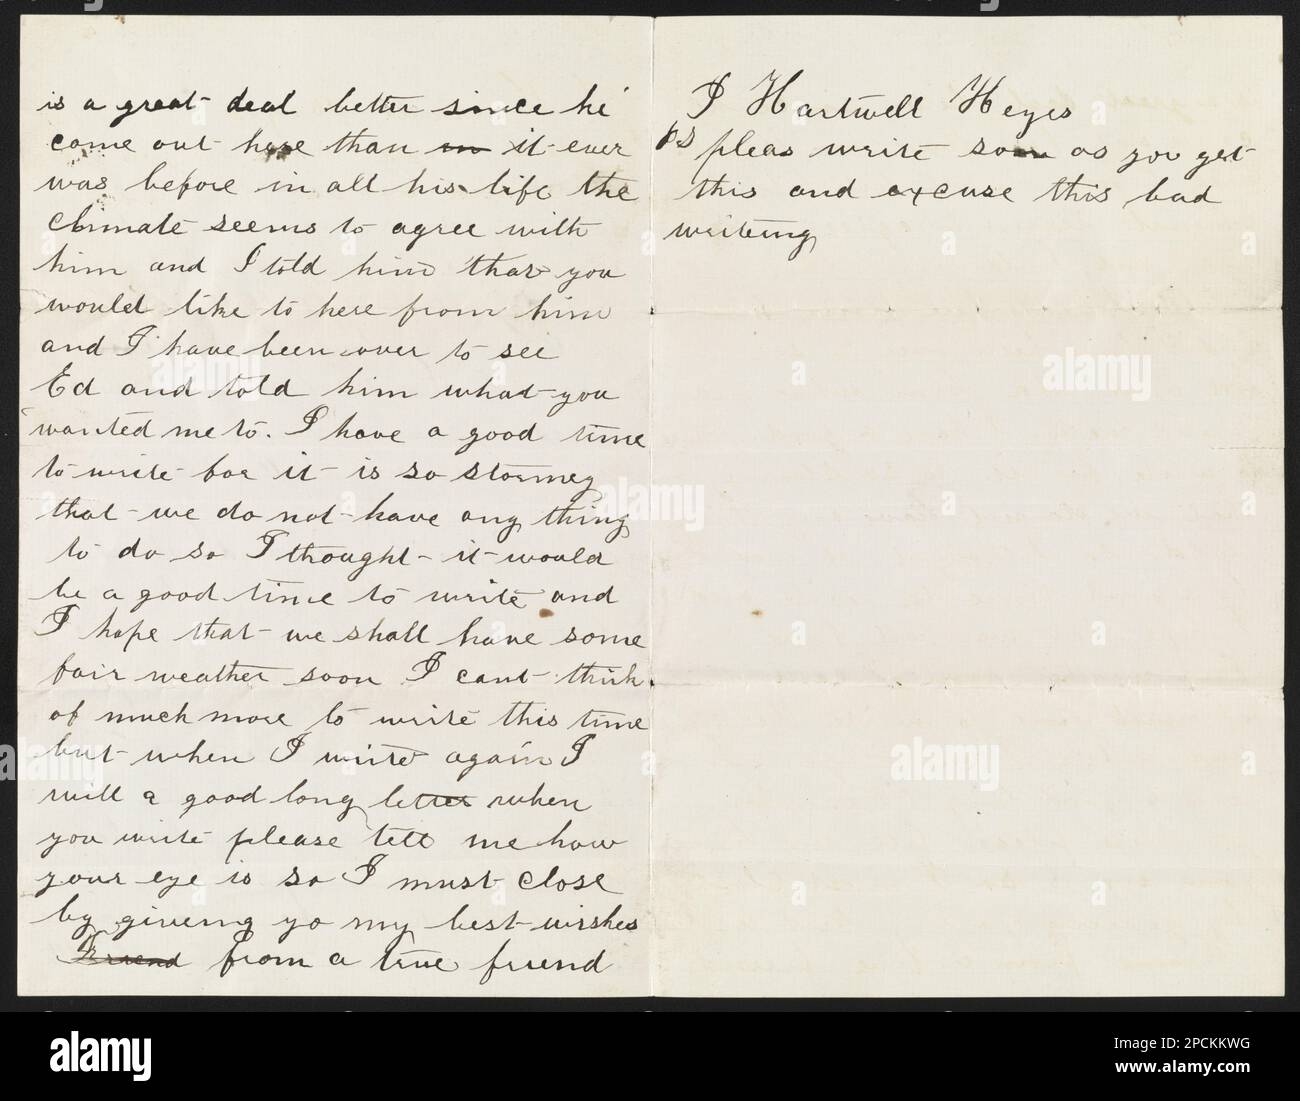 is a great deal better since he
come out here than in it ever
was before in all his life the
climate seems to agree with
him and I told him that you
would like to here from him
and I have been over to see
Ed and told him what you
wanted me to. I have a good time
to write for it is so stormey
that we do not have any thing
to do so I thought it would
be a good time to write and
I hope that we shall have some
fair weather soon I cant think
of much more to write this time
but when I write again I
will a good long letter when
you write please tell me how
your eye is so I must close
by giveing yo my best wishes
Friend from a true friend
J Hartwell Keyes
PS pleas write soon as you get
this and excuse this bad
writeing
alamy
Image ID: 2PCKKWG
www.alamy.com